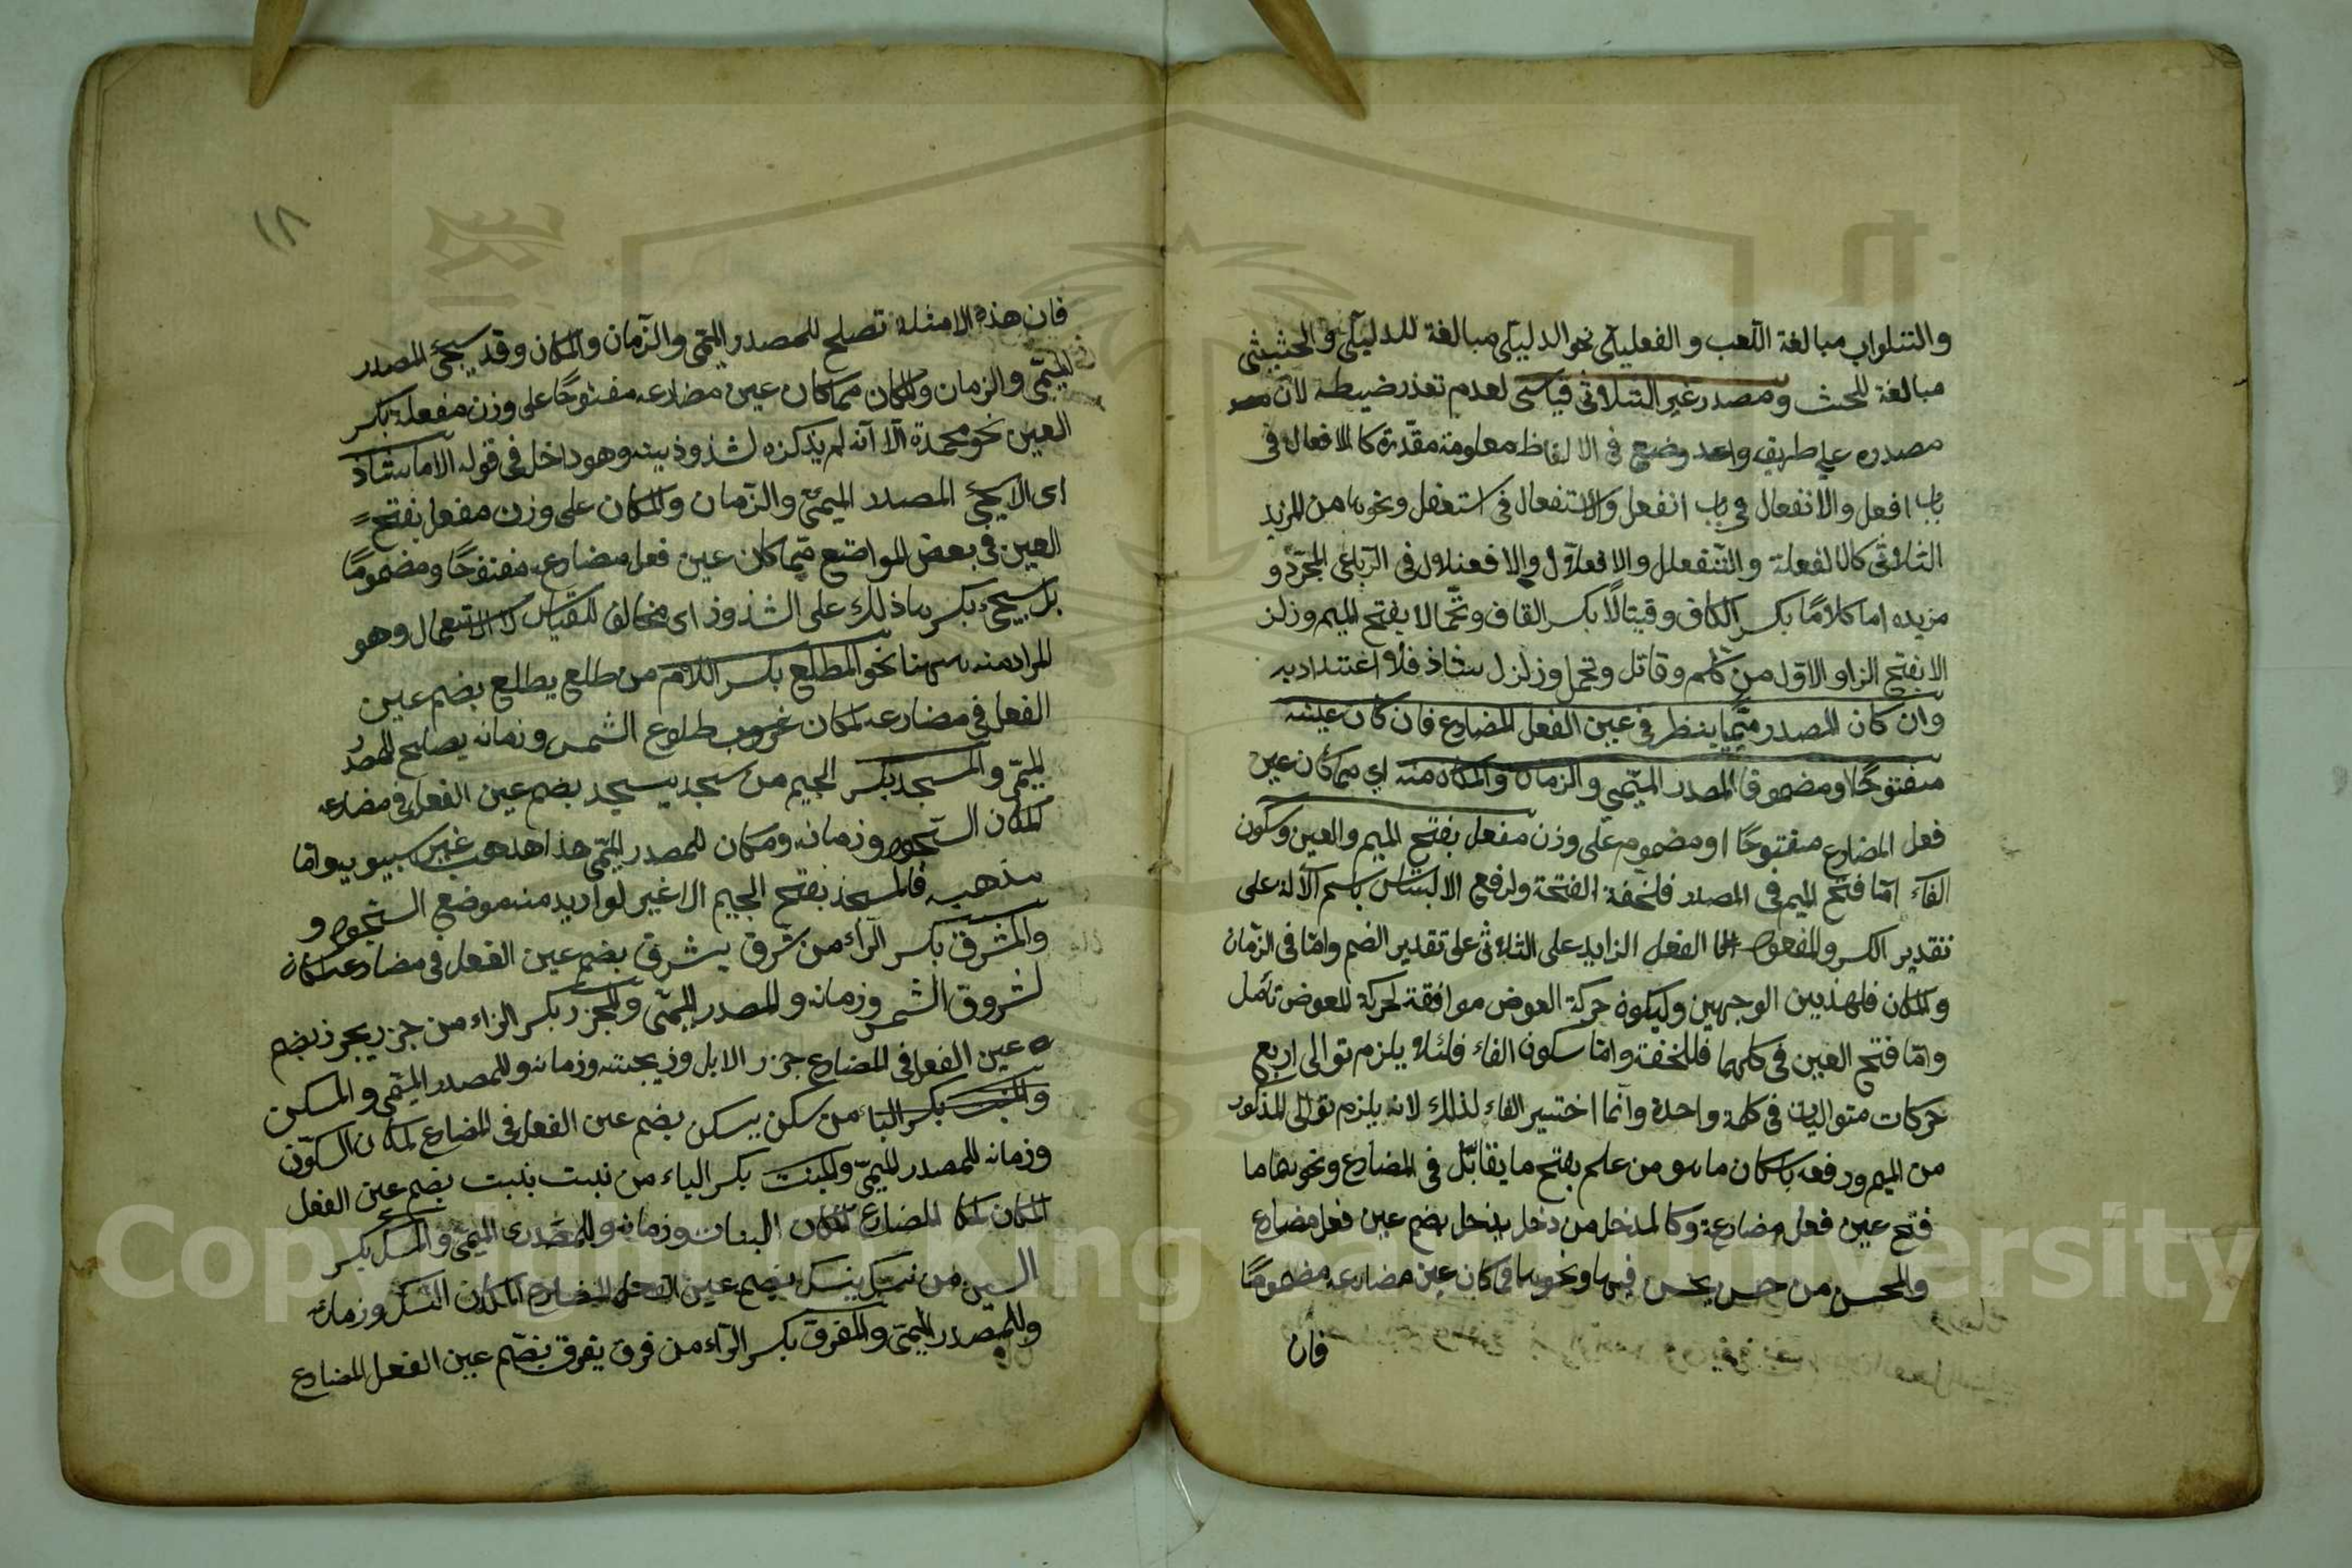 والتلواب مبالغة اللعب والفعليلى نحو الدليلى مبالغة للدليلى والحثيثى
مبالغة للحث ومصدر غير الثلاثى قياسى لعدم تعذر ضبطه لان
مصدره على طريق واحد وضع فى الالفاظ معلومة مقدرة كالافعال فى
باب افعل والانفعال فى باب انفعل والاستفعال فى استفعل ونحوها من المزيد
الثلاثى كالفعللة والتفعلل والافعلال والافعنلال فى الرباعى المجرد و
مزيده اما كلاما بكسر الكاف وقيتالا بكسر القاف وتحمالا بفتح الميم وزلز
الا بفتح الزاو الاول من كلم وقاتل وتحمل وزلزل شاذ فلا اعتداد به
وان كان المصدر ميميا ينظر فى عين الفعل المضارع فان كان عينه
مفتوحا ومضموما فالمصدر الميمى والزمان والمكان منه اى مما كان عين
فعل المضارع مفتوحا او مضموم على وزن مفعل بفتح الميم والعين وسكون
الفاء اما فتح الميم فى المصدر فلخفة الفتحة ولرفع الالتباس باسم الآلة على
تقدير الكسر والمفعول الفعل الزايد على الثلاثى على تقدير الضم واما فى الزمان
والمكان فلهذين الوجهين وليكون حركة العوض موافقة لحركة المعوض تأمل
واما فتح العين فى كلهما فللخفة واما سكون الفاء فلئلا يلزم توالى اربع
حركات متواليات فى كلمة واحدة وانما اختير الفاء لذلك لانه يلزم توالى المذكور
من الميم ورفعه باسكان ما هو من علم بفتح ما يقابل فى المضارع ونحوهما ما
فتح عين فعل مضارعة وكالمدخل من دخل يدخل بضم عين فعل مضارع
والمحسن من حسن يحسن فيها ونحوها مما كان عين مضارعه مضموما
فان
١٨
فان هذه الامثلة تصلح للمصدر الميمى والزمان والمكان وقد يجئ المصدر
الميمى والزمان والمكان مما كان عين مضارعه مفتوحا على وزن مفعلة بكسر
العين نحو محمدة الا انه لم يذكره لشذوذيته وهو داخل فى قوله الا ما شاذ
اى الا يجئ المصدر الميمى والزمان والمكان على وزن مفعل بفتح
العين فى بعض المواضع مما كان عين فعل مضارع مفتوحا ومضموما
بل يجئ بكسرها ذلك على الشذوذ اى مخالف للقياس لا الاستعمال وهو
المراد منه ههنا نحو المطلع بكسر اللام من طلع يطلع بضم عين
الفعل فى مضارعه لمكان طلوع الشمس وزمانه يصلح للمصدر
الميمى والمسجد بكسر الجيم من سجد يسجد بضم عين الفعل فى مضارعه
لمكان السجود وزمانه ومكان للمصدر الميمى هذا مذهب غير سيبويه واما
مذهبه فالمسجد بفتح الجيم لا غير لو اريد منه موضع السجود و
والمشرق بكسر الراء من شرق يشرق بضم عين الفعل فى مضارعه لمكان
لشروق الشمس وزمانه والمصدر الميمى والمجزر بكسر الزاء من جزر يجزر بضم
عين الفعل فى المضارع جزر الابل وذبحته وزمانه وللمصدر الميمى والمسكن
بكسر من سكن يسكن بضم عين الفعل فى المضارع لمكان السكون
وزمانه للمصدر الميمى والمنبت بكسر الباء من نبت ينبت بضم عين الفعل
المضارع لمكان النبات وزمانه وللمصدر الميمى والمنسك بكسر
السين من نسك ينسك بضم عين الفعل المضارع لمكان النسك وزمانه
وللمصدر الميمى والمفرق بكسر الراء من فرق يفرق بضم عين الفعل المضارع
Copyright © King Saud University